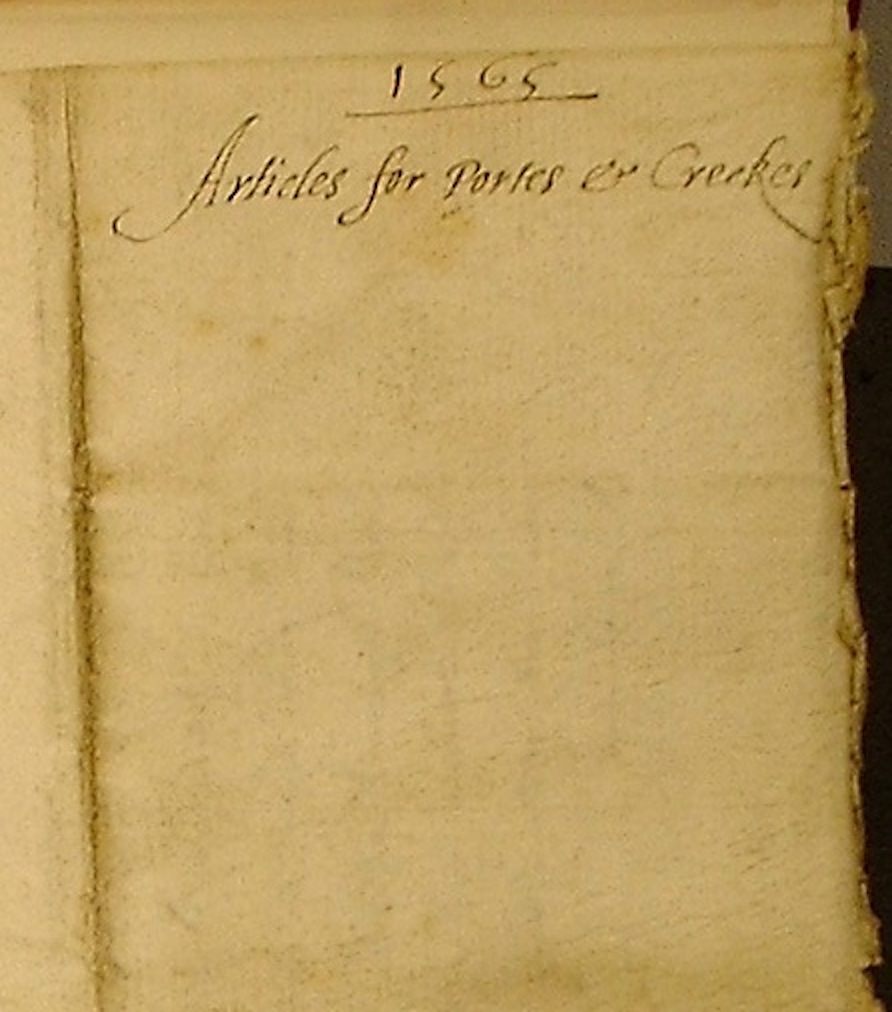 1565
Articles for Portes & Creekes